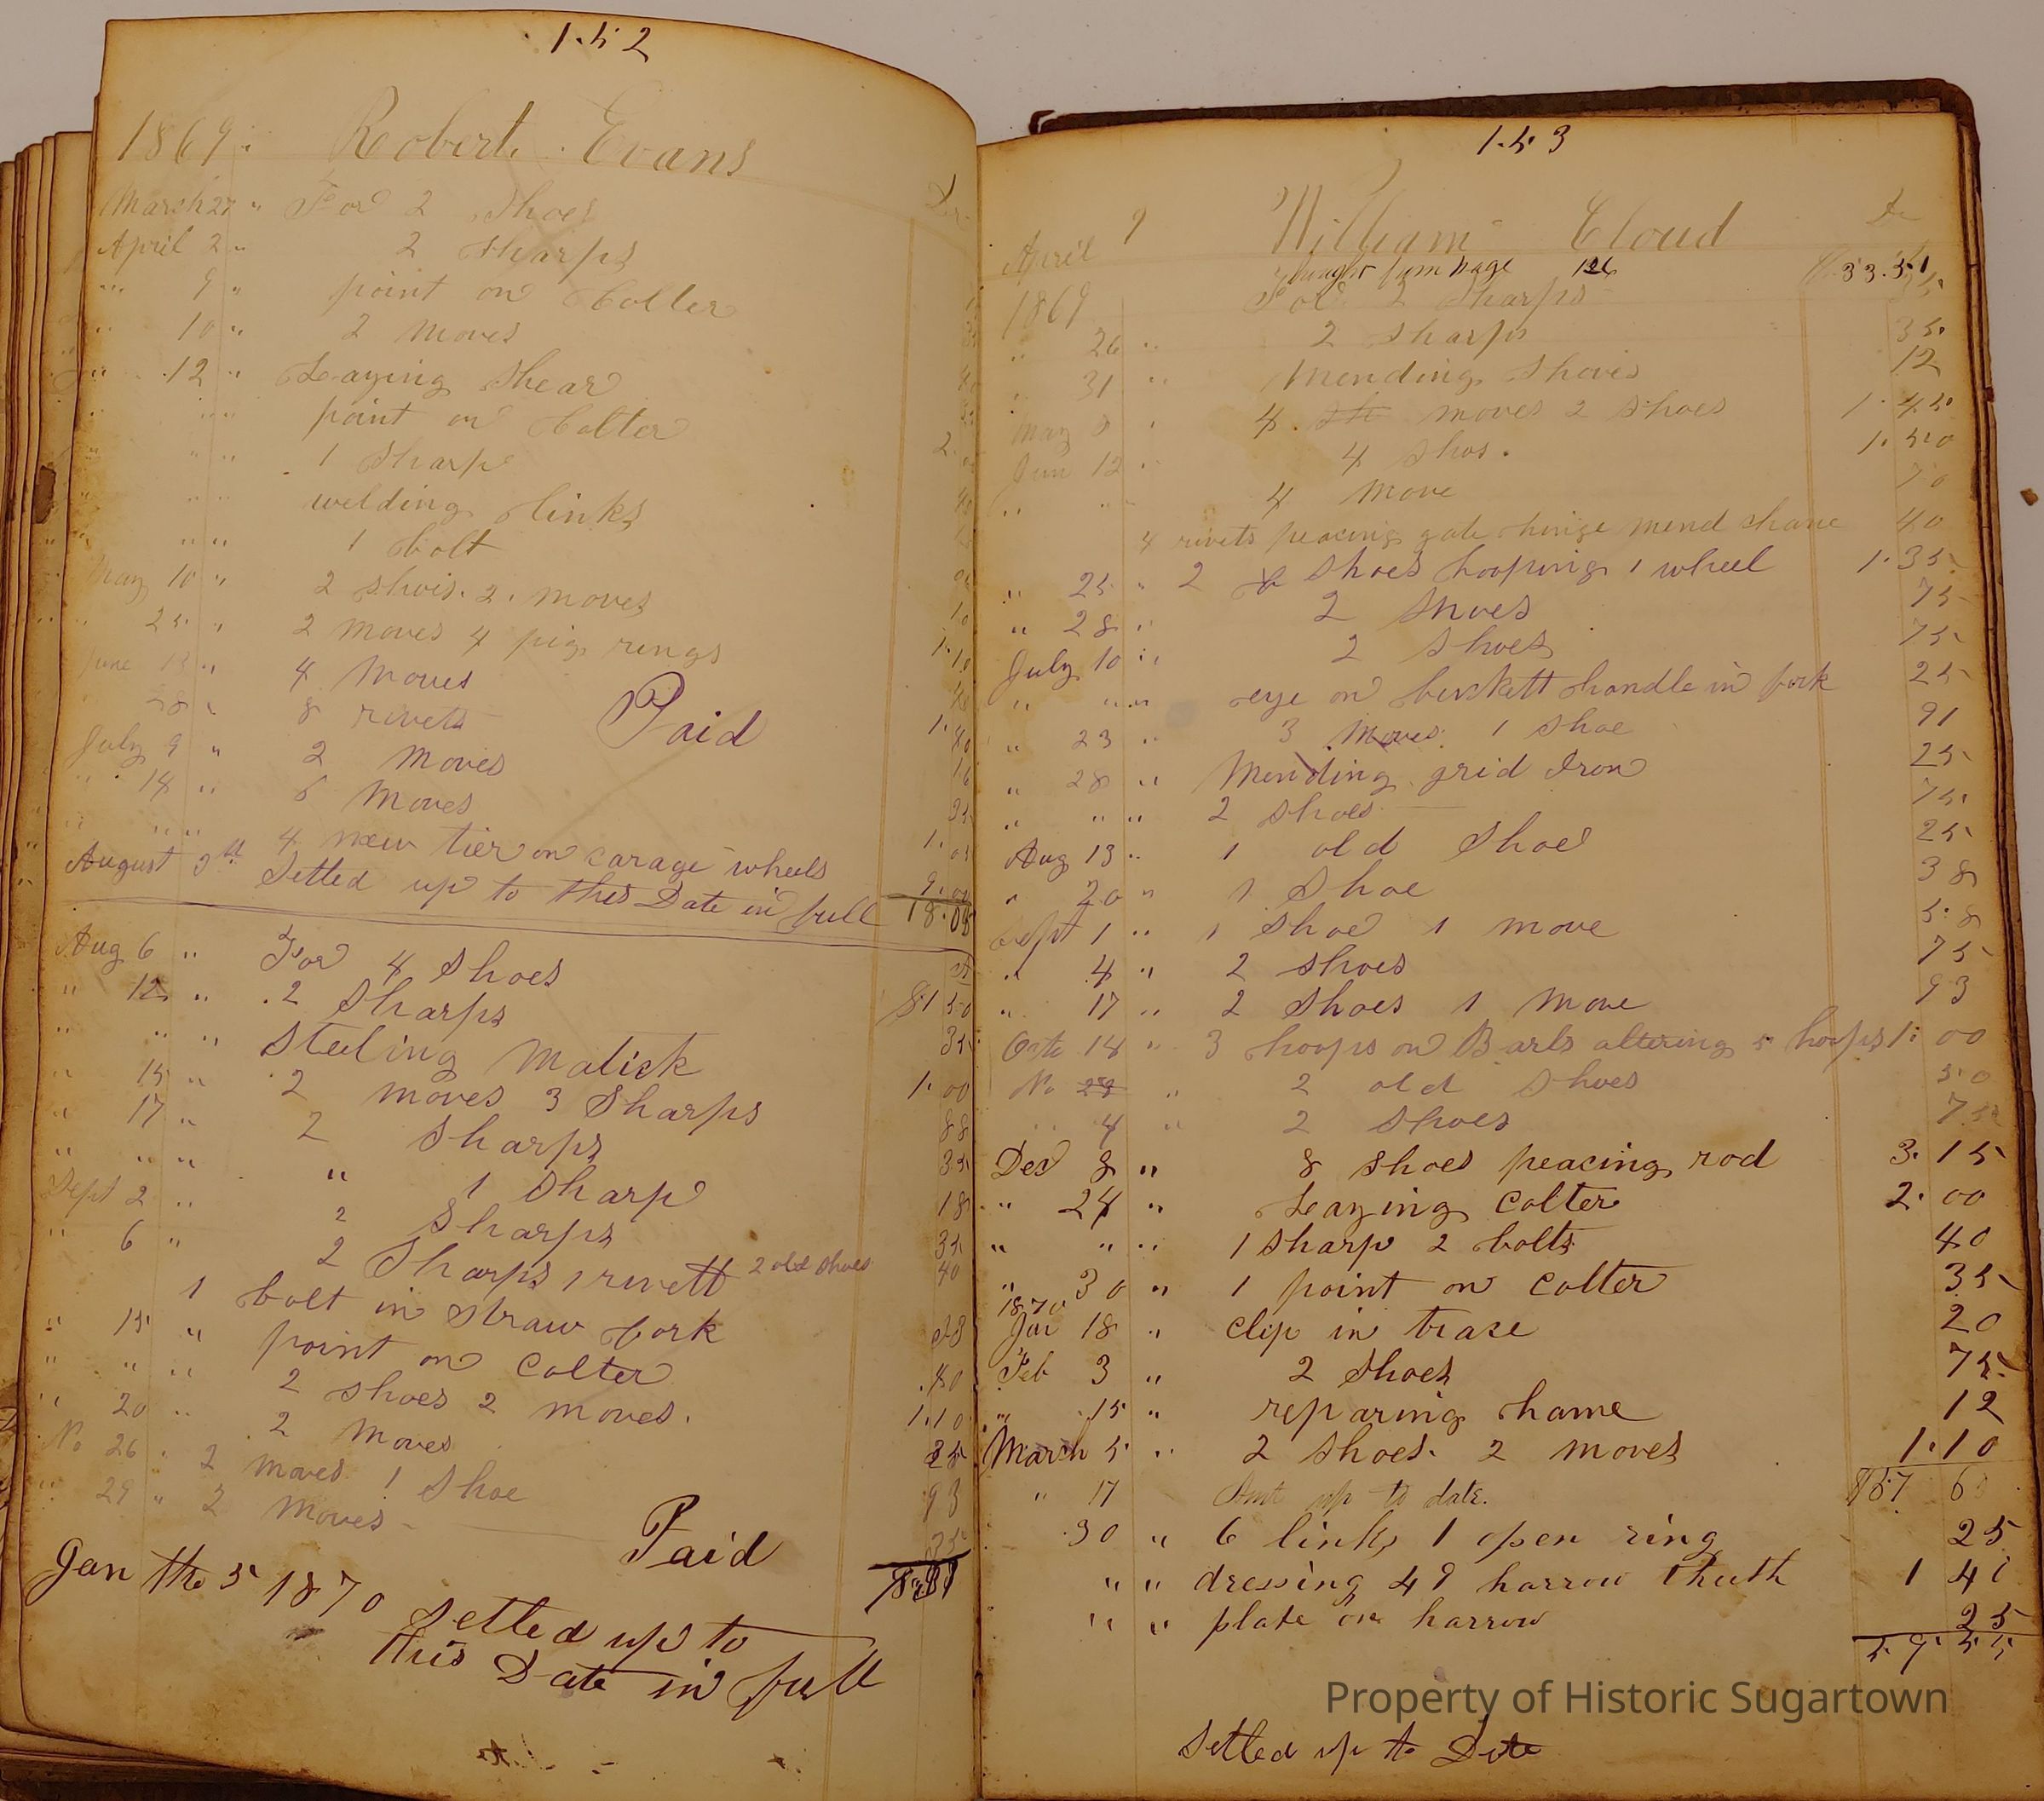 152
1869 Robert Evans
Dr
March 27 " For 2 Shoes
April 2 " 2 sharps
" 9 " point on Colter
" 10 " 2 moves
" 12 " Leaying Shear
" " point on Colter
" " 1 Sharp
" " welding links
" " 1 bolt
May 10 " 2 shois. 2. moves
" 25 " 2 moves 4 pig rings
June 13 " 4 Moves
" 28 " 8 rivets
Paid
July 9 " 2 moves
" 14 " 6 Moves
" " " 4 new tier on carage wheels 9.00
August 5th Setled up to this Date in full 18.08
Aug 6 " For 4 shoes $1 50
" 12 " 2 Sharps 35
" " " Steeling Matick 1.00
" 15 " 2 moves 3 Sharps 88
" 17 " 2 sharps 35
" " " " 1 Sharp 18
Sept 2 " 2 Sharps 35
" 6 " 2 Sharps 1 rivett 2 old shoes 40
1 bolt in straw fork
" 15 " point on colter .40
" " " 2 shoes 2 moves. 1.10
" 20 " 2 moves 25
No 26 " 2 moves 1 Shoe 93
" 29 " 2 moves 35
Paid
Jan the 5 1870 Setled up to
this Date in full
153
April 9 William Cloud Dr
Brought from page 126 33.51
1869 For 2 Sharps
" 26 " 2 sharps 35
" 31 " Mending Shovel 12
May 8 " 4 sh moves 2 shoes 1.45
Jun 12 " 4 shos. 1.50
" " " 4 move 70
4 rivets peacing gate hinge mend chane 40
" 25 " 2 shoes hooping 1 wheel 1.35
" 28 " 2 shoes 75
July 10 " 2 shoes 75
" " " eye on buskett handle in fork 25
" 23 " 3 moves 1 shoe 91
" 28 " Mending grid Iron 25
" " " 2 shoes 75
Aug 13 " 1 old Shoe 25
" 20 " 1 Shoe 38
Sept 1 " 1 shoe 1 move 58
" 4 " 2 shoes 75
" 17 " 2 shoes 1 move 93
Octo 14 " 3 hoops on Barls altering 5 hoops 1.00
No 29 " 2 old shoes 50
" 4 " 2 shoes 75
Dec 8 " 8 shoes peacing rod 3.15
" 24 " Leaying colter 2.00
" " " 1 sharp 2 bolts 40
" 30 " 1 point on colter 35
1870
Jan 18 " clip in trase 20
Feb 3 " 2 shoes 75
" 15 " reparing hame 12
March 5 " 2 shoes. 2 moves 1.10
" 17 Amt up to date. $57 6
30 " 6 links 1 open ring 25
" " dressing 49 harrow theeth 1 4
" " plate on harrow 25
59.55
Property of Historic Sugartown
Setled up to Date